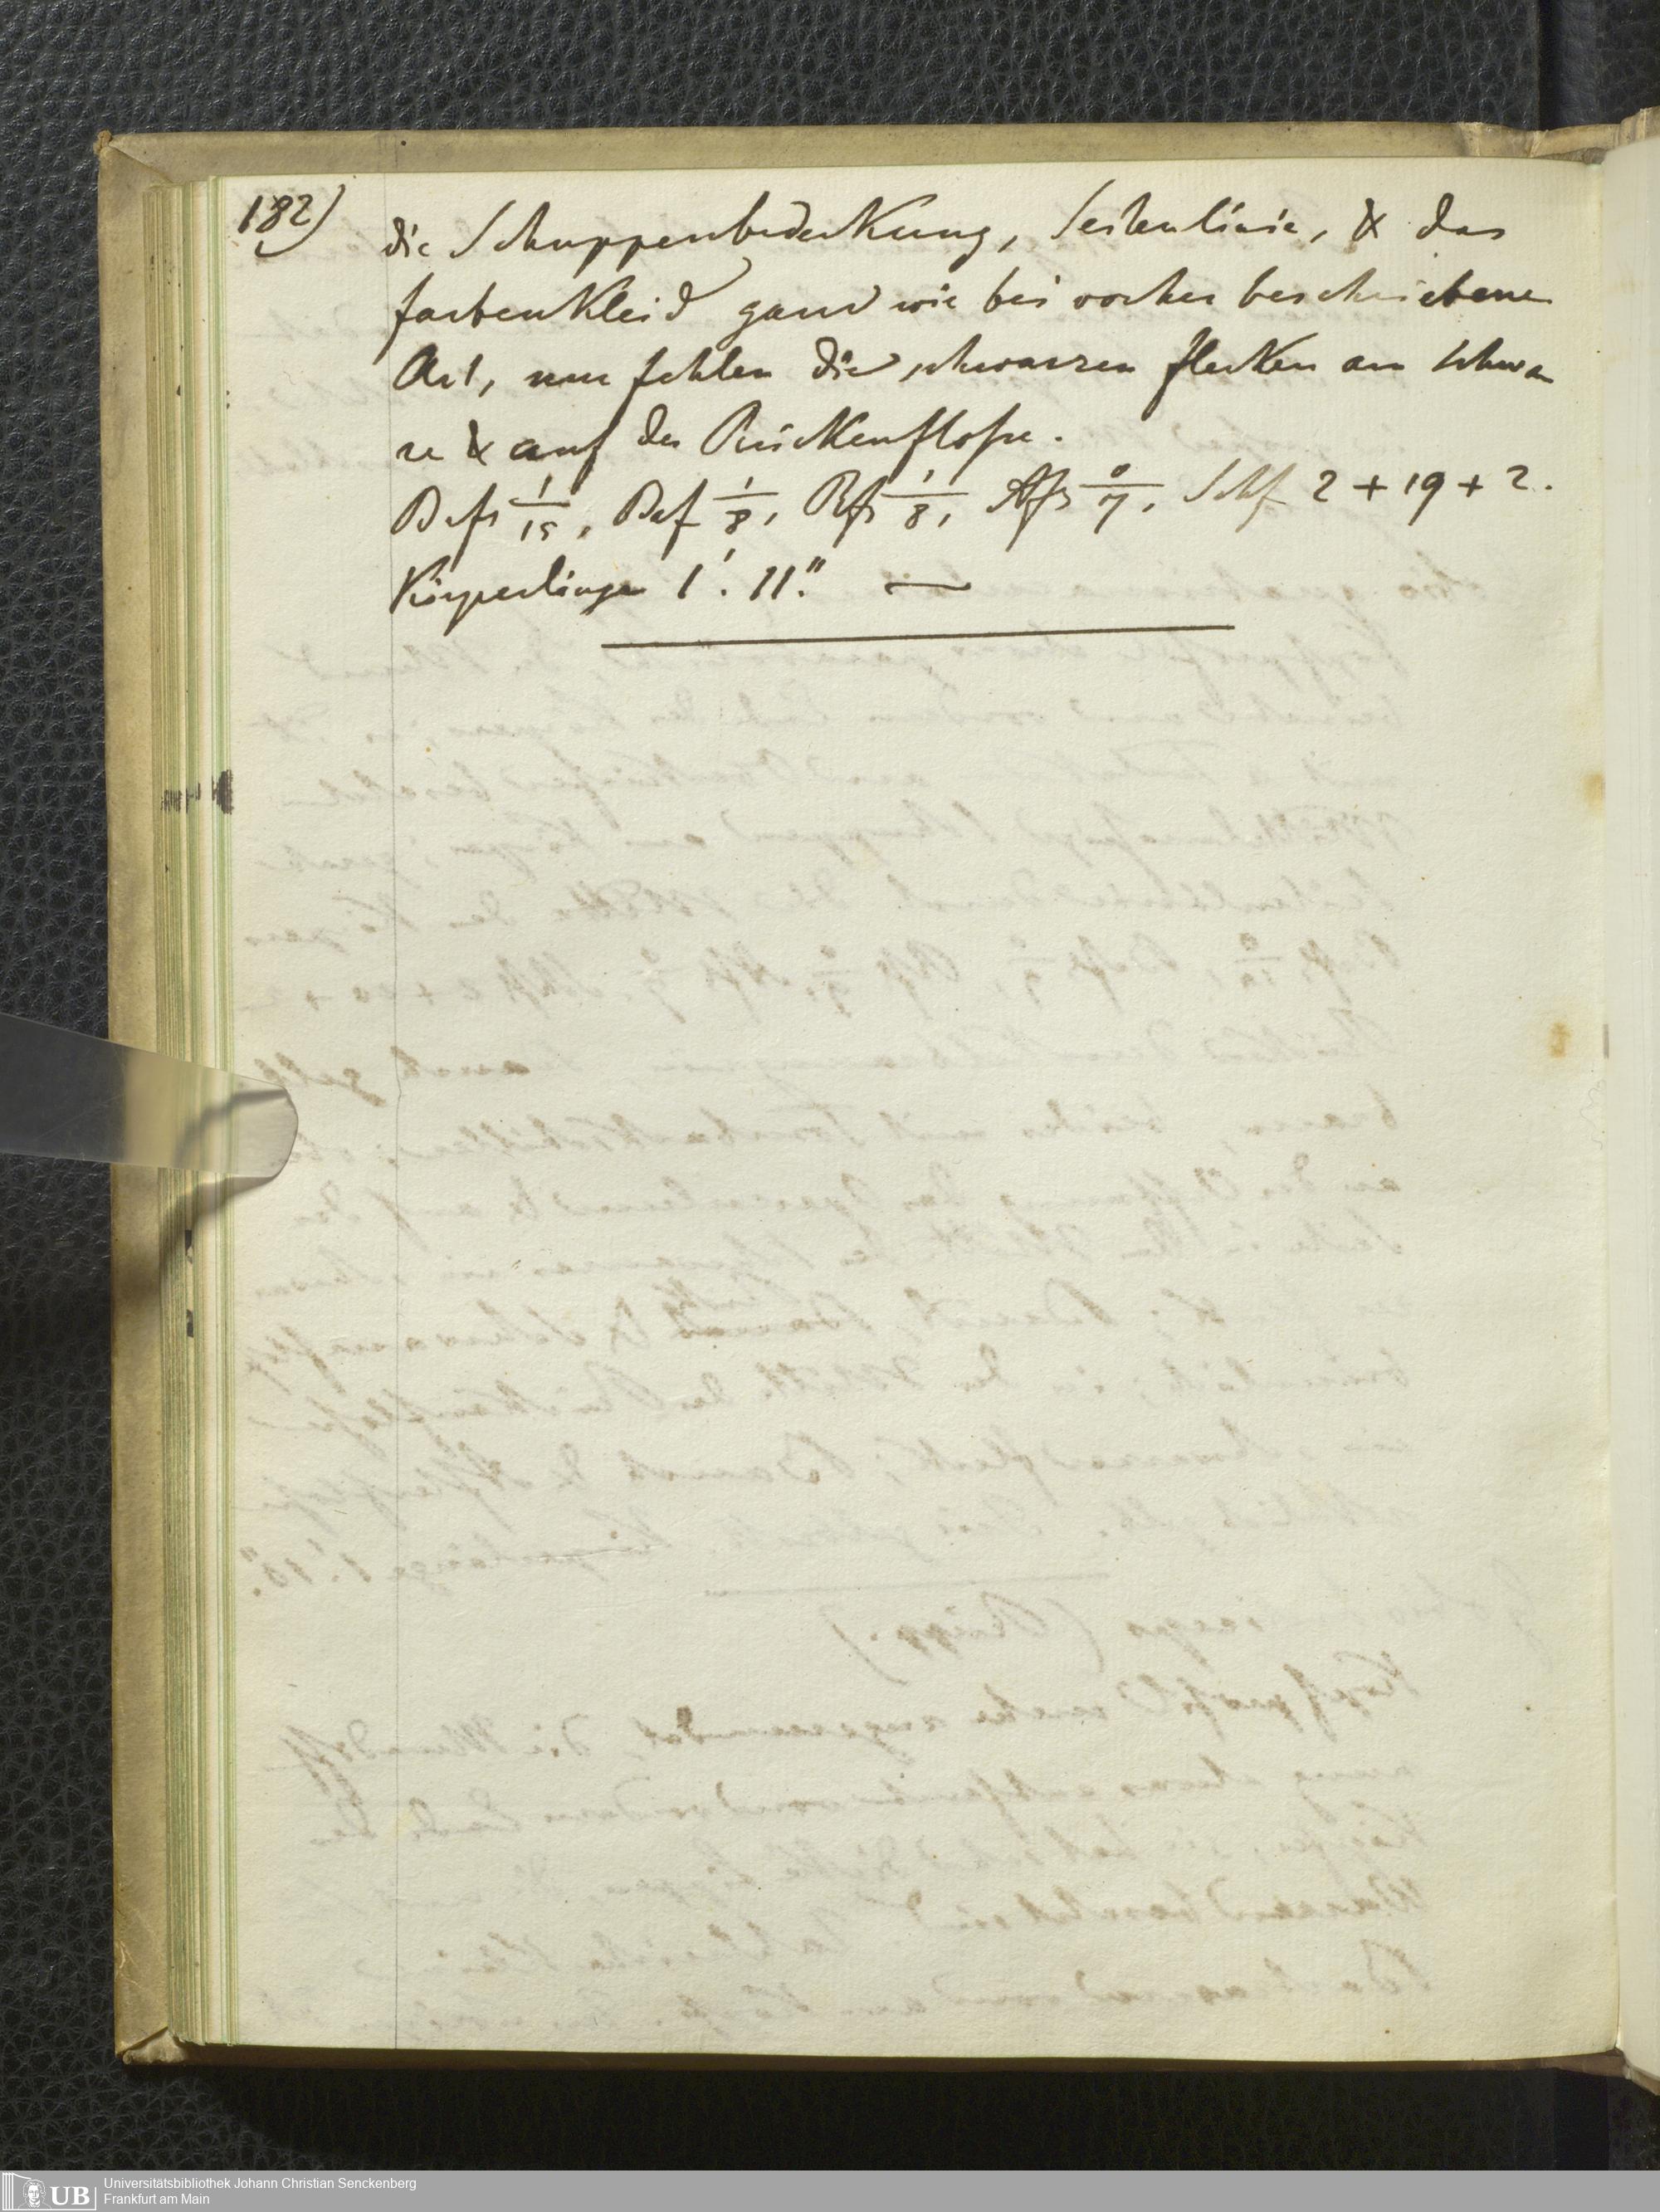 182)
die Schuppenbedeckung, Seitenlinie, & das
farbenkleid ganz wie bei vorher beschriebener
Art, nur fehlen die schwarzen flecken am Schwan
ze & auf der Rückenflosse.
Brfs 1/15, Baf 1/8, Rfs 1/8, Afs 0/7, Schf 2 + 19 + 2.
Körperlänge 1'. 11." —
UB
Universitätsbibliothek Johann Christian Senckenberg
Frankfurt am Main